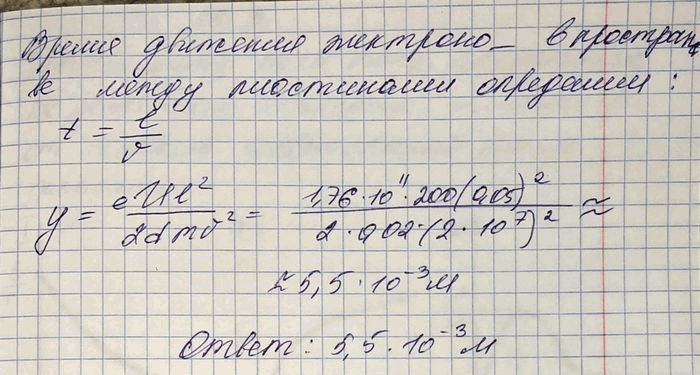 Время движения электроно_ в простран
ве между пластинами определим:
t = l/v
y = eUl²/2dmv² = 1,76·10¹¹·200(0,05)²/2·0,02·(2·10⁷)² ≈
≈ 5,5·10⁻³ м
Ответ: 5,5·10⁻³ м